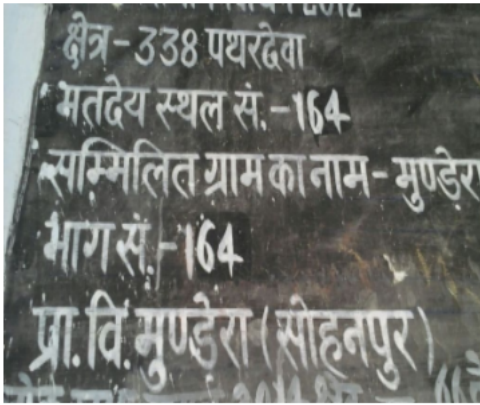 2012
क्षेत्र-338 पथरदेवा
मतदेय स्थल सं.-164
सम्मिलित ग्राम का नाम-मुण्डेरा
भाग सं.-164
प्रा.वि.मुण्डेरा (सोहनपुर)